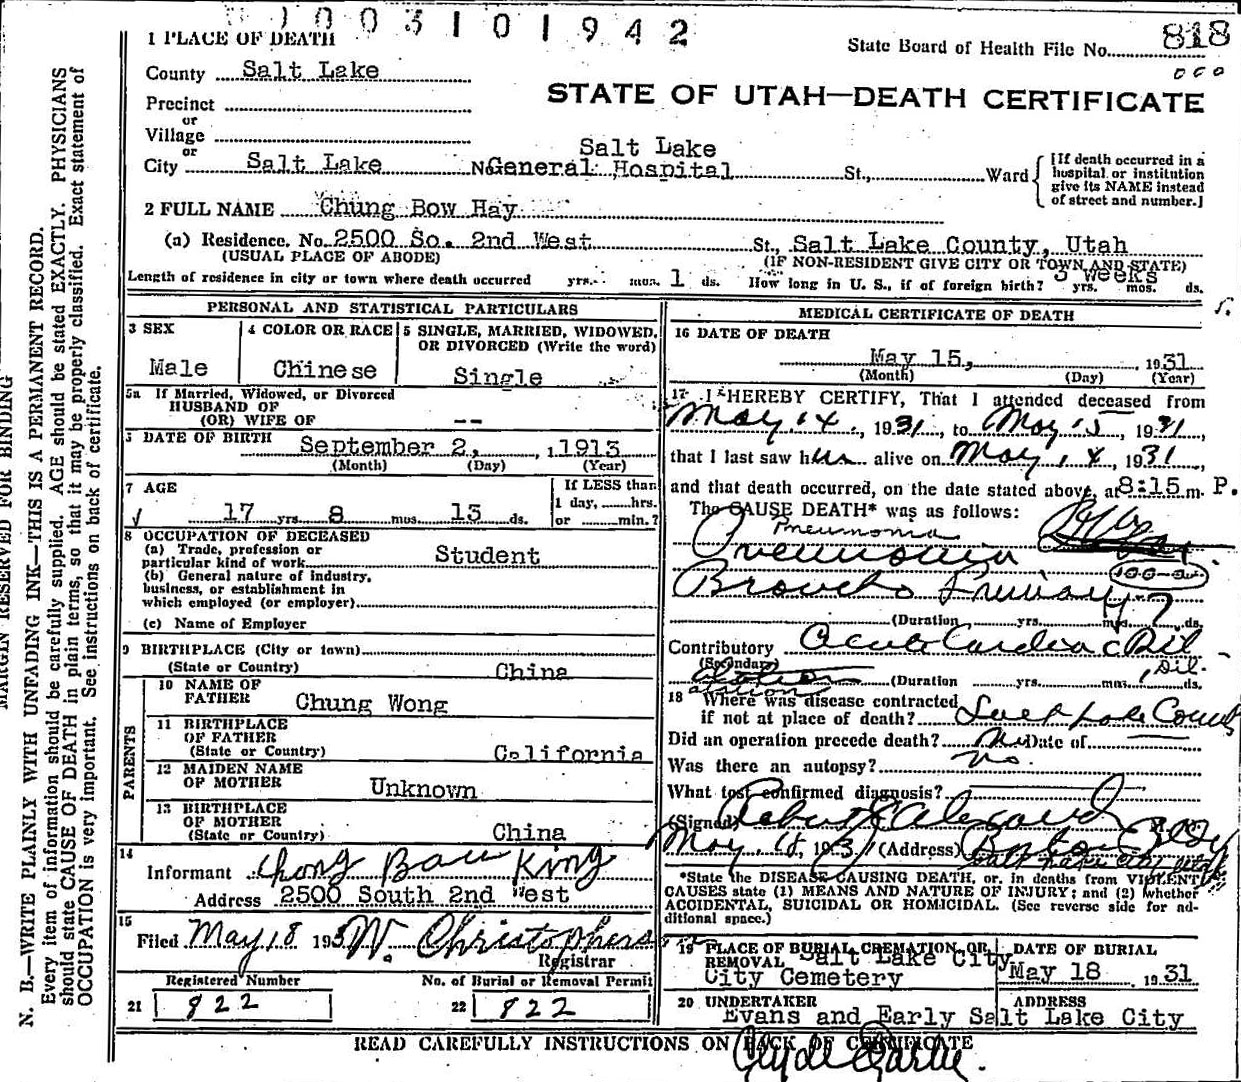 1003101942
1 PLACE OF DEATH
State Board of Health File No. 818
County Salt Lake
STATE OF UTAH—DEATH CERTIFICATE
Precinct
or
Village
or
Salt Lake
City Salt Lake No General Hospital St., Ward
[If death occurred in a hospital or institution give its NAME instead of street and number.]
2 FULL NAME Chung Bow Hay
(a) Residence. No. 2500 So. 2nd West St., Salt Lake County, Utah
(USUAL PLACE OF ABODE) (IF NON-RESIDENT GIVE CITY OR TOWN AND STATE)
Length of residence in city or town where death occurred yrs. mos. 1 ds. How long in U. S., if of foreign birth? 3 weeks yrs. mos. ds.
PERSONAL AND STATISTICAL PARTICULARS
3 SEX
Male
4 COLOR OR RACE
Chinese
5 SINGLE, MARRIED, WIDOWED, OR DIVORCED (Write the word)
Single
5a If Married, Widowed, or Divorced
HUSBAND OF
(OR) WIFE OF --
DATE OF BIRTH September 2, 1913
(Month) (Day) (Year)
7 AGE
17 yrs. 8 mos. 13 ds.
If LESS than
1 day, hrs.
or min.?
8 OCCUPATION OF DECEASED
(a) Trade, profession or
particular kind of work Student
(b) General nature of industry,
business, or establishment in
which employed (or employer)
(c) Name of Employer
9 BIRTHPLACE (City or town)
(State or Country) China
PARENTS
10 NAME OF
FATHER Chung Wong
11 BIRTHPLACE
OF FATHER
(State or Country) California
12 MAIDEN NAME
OF MOTHER Unknown
13 BIRTHPLACE
OF MOTHER
(State or Country) China
14
Informant Chong Bau King
Address 2500 South 2nd West
15
Filed May 18 193 W. Christophers
Registrar
Registered Number No. of Burial or Removal Permit
21 822 22 822
MEDICAL CERTIFICATE OF DEATH
16 DATE OF DEATH
May 15, 1931
(Month) (Day) (Year)
17 I HEREBY CERTIFY, That I attended deceased from
May 14, 1931, to May 15 1931,
that I last saw h alive on May 14, 1931,
and that death occurred, on the date stated above, at 8:15 m. P.
The CAUSE DEATH* was as follows:
Pneumonia
Pneumonia
Broncho
(Duration yrs. mos. ds.
Contributory Acute Cardiac Dil
(Secondary) Dil.
(Duration yrs. mos. ds.
18 Where was disease contracted
if not at place of death? Salt Lake County
Did an operation precede death? No Date of
Was there an autopsy? No.
What test confirmed diagnosis?
(Signed)
May 18, 1931 (Address)
Salt Lake City Utah
*State the DISEASE CAUSING DEATH, or, in deaths from VIOLENT
CAUSES state (1) MEANS AND NATURE OF INJURY; and (2) whether
ACCIDENTAL, SUICIDAL OR HOMICIDAL. (See reverse side for additional space.)
19 PLACE OF BURIAL, CREMATION, OR
REMOVAL Salt Lake City
City Cemetery
DATE OF BURIAL
May 18 1931
20 UNDERTAKER ADDRESS
Evans and Early Salt Lake City
READ CAREFULLY INSTRUCTIONS ON BACK OF CERTIFICATE
MARGIN RESERVED FOR BINDING
N. B.—WRITE PLAINLY WITH UNFADING INK—THIS IS A PERMANENT RECORD.
Every item of information should be carefully supplied. AGE should be stated EXACTLY. PHYSICIANS
should state CAUSE OF DEATH in plain terms, so that it may be properly classified. Exact statement of
OCCUPATION is very important. See instructions on back of certificate.